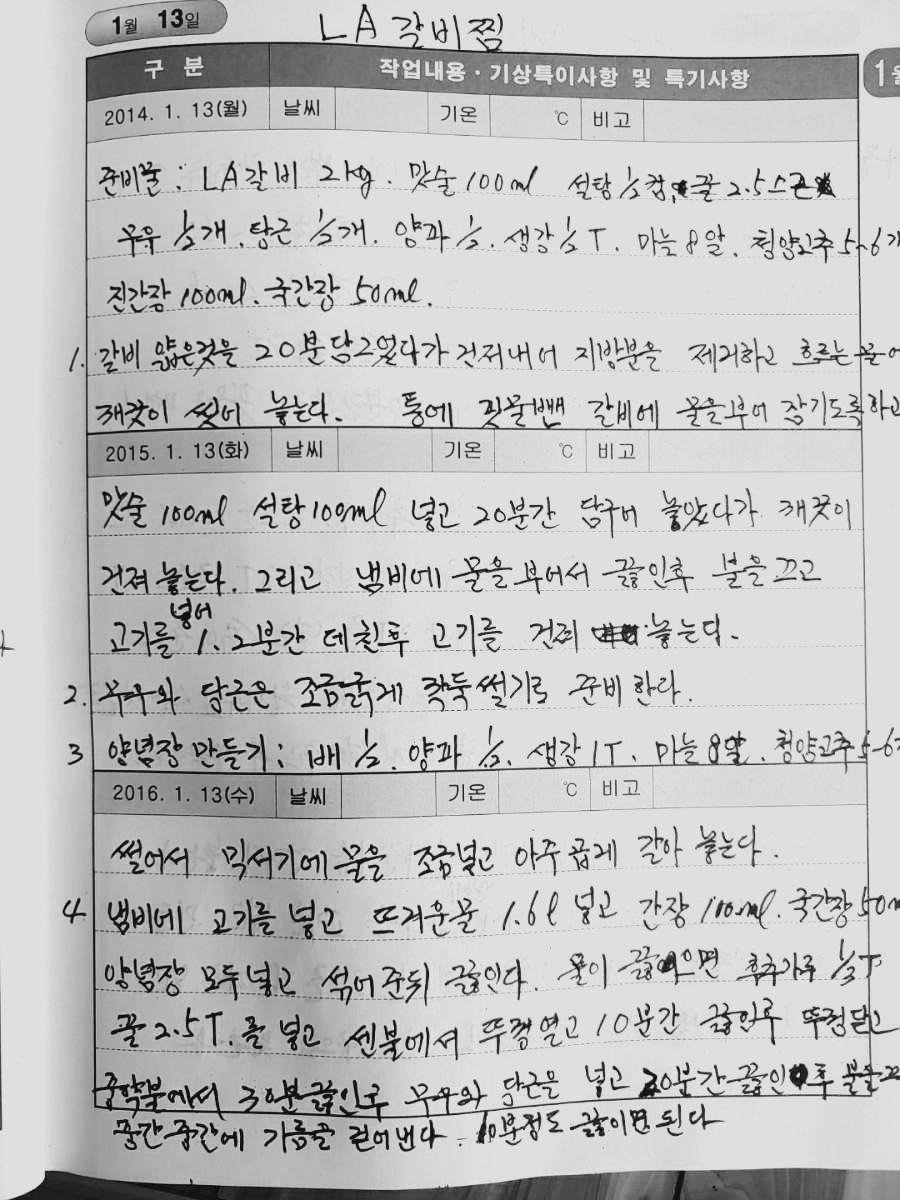 1월 13일 LA갈비찜
구 분 작업내용·기상특이사항 및 특기사항 1월
2014. 1. 13(월) 날씨 기온 ℃ 비고
준비물 : LA갈비 2kg. 맛술 100ml 설탕 ½컵, 꿀 2.5스픈
무우 ½개. 당근 ½개. 양파 ½. 생강 ½T. 마늘 8알. 청양고추 5~6개
진간장 100ml. 국간장 50ml.
1. 갈비 얇은것을 20분담그었다가 건저내어 지방분을 제거하고 흐르는물에
깨끗이 씻어 놓는다. 통에 핏물뺀 갈비에 물을부어 잠기도록하고
2015. 1. 13(화) 날씨 기온 ℃ 비고
맛술 100ml 설탕 100ml 넣고 20분간 담구어 놓았다가 깨끗이
건져 놓는다. 그리고 냄비에 물을부어서 끓인후 불을끄고
고기를 넣어 1.2분간 데친후 고기를 건저 놓는다.
2. 무우와 당근은 조금굵게 깍둑썰기로 준비한다.
3 양념장만들기 : 배 ½. 양파 ½. 생강 1T. 마늘 8알. 청양고추 5-6개
2016. 1. 13(수) 날씨 기온 ℃ 비고
썰어서 믹서기에 물을 조금넣고 아주곱게 갈아 놓는다.
4 냄비에 고기를 넣고 뜨거운물 1.6l 넣고 간장 100ml. 국간장 50ml
양념장 모두넣고 섞어준뒤 끓인다. 물이 끓으면 후추가루 ½T
꿀 2.5T.를 넣고 센불에서 뚜껑열고 10분간 끓인후 뚜껑닫고
중약불에서 30분끓인후 무우와 당근을 넣고 20분간끓인후 불을끄
중간중간에 기름을 걷어낸다. 10분정도 끓이면 된다